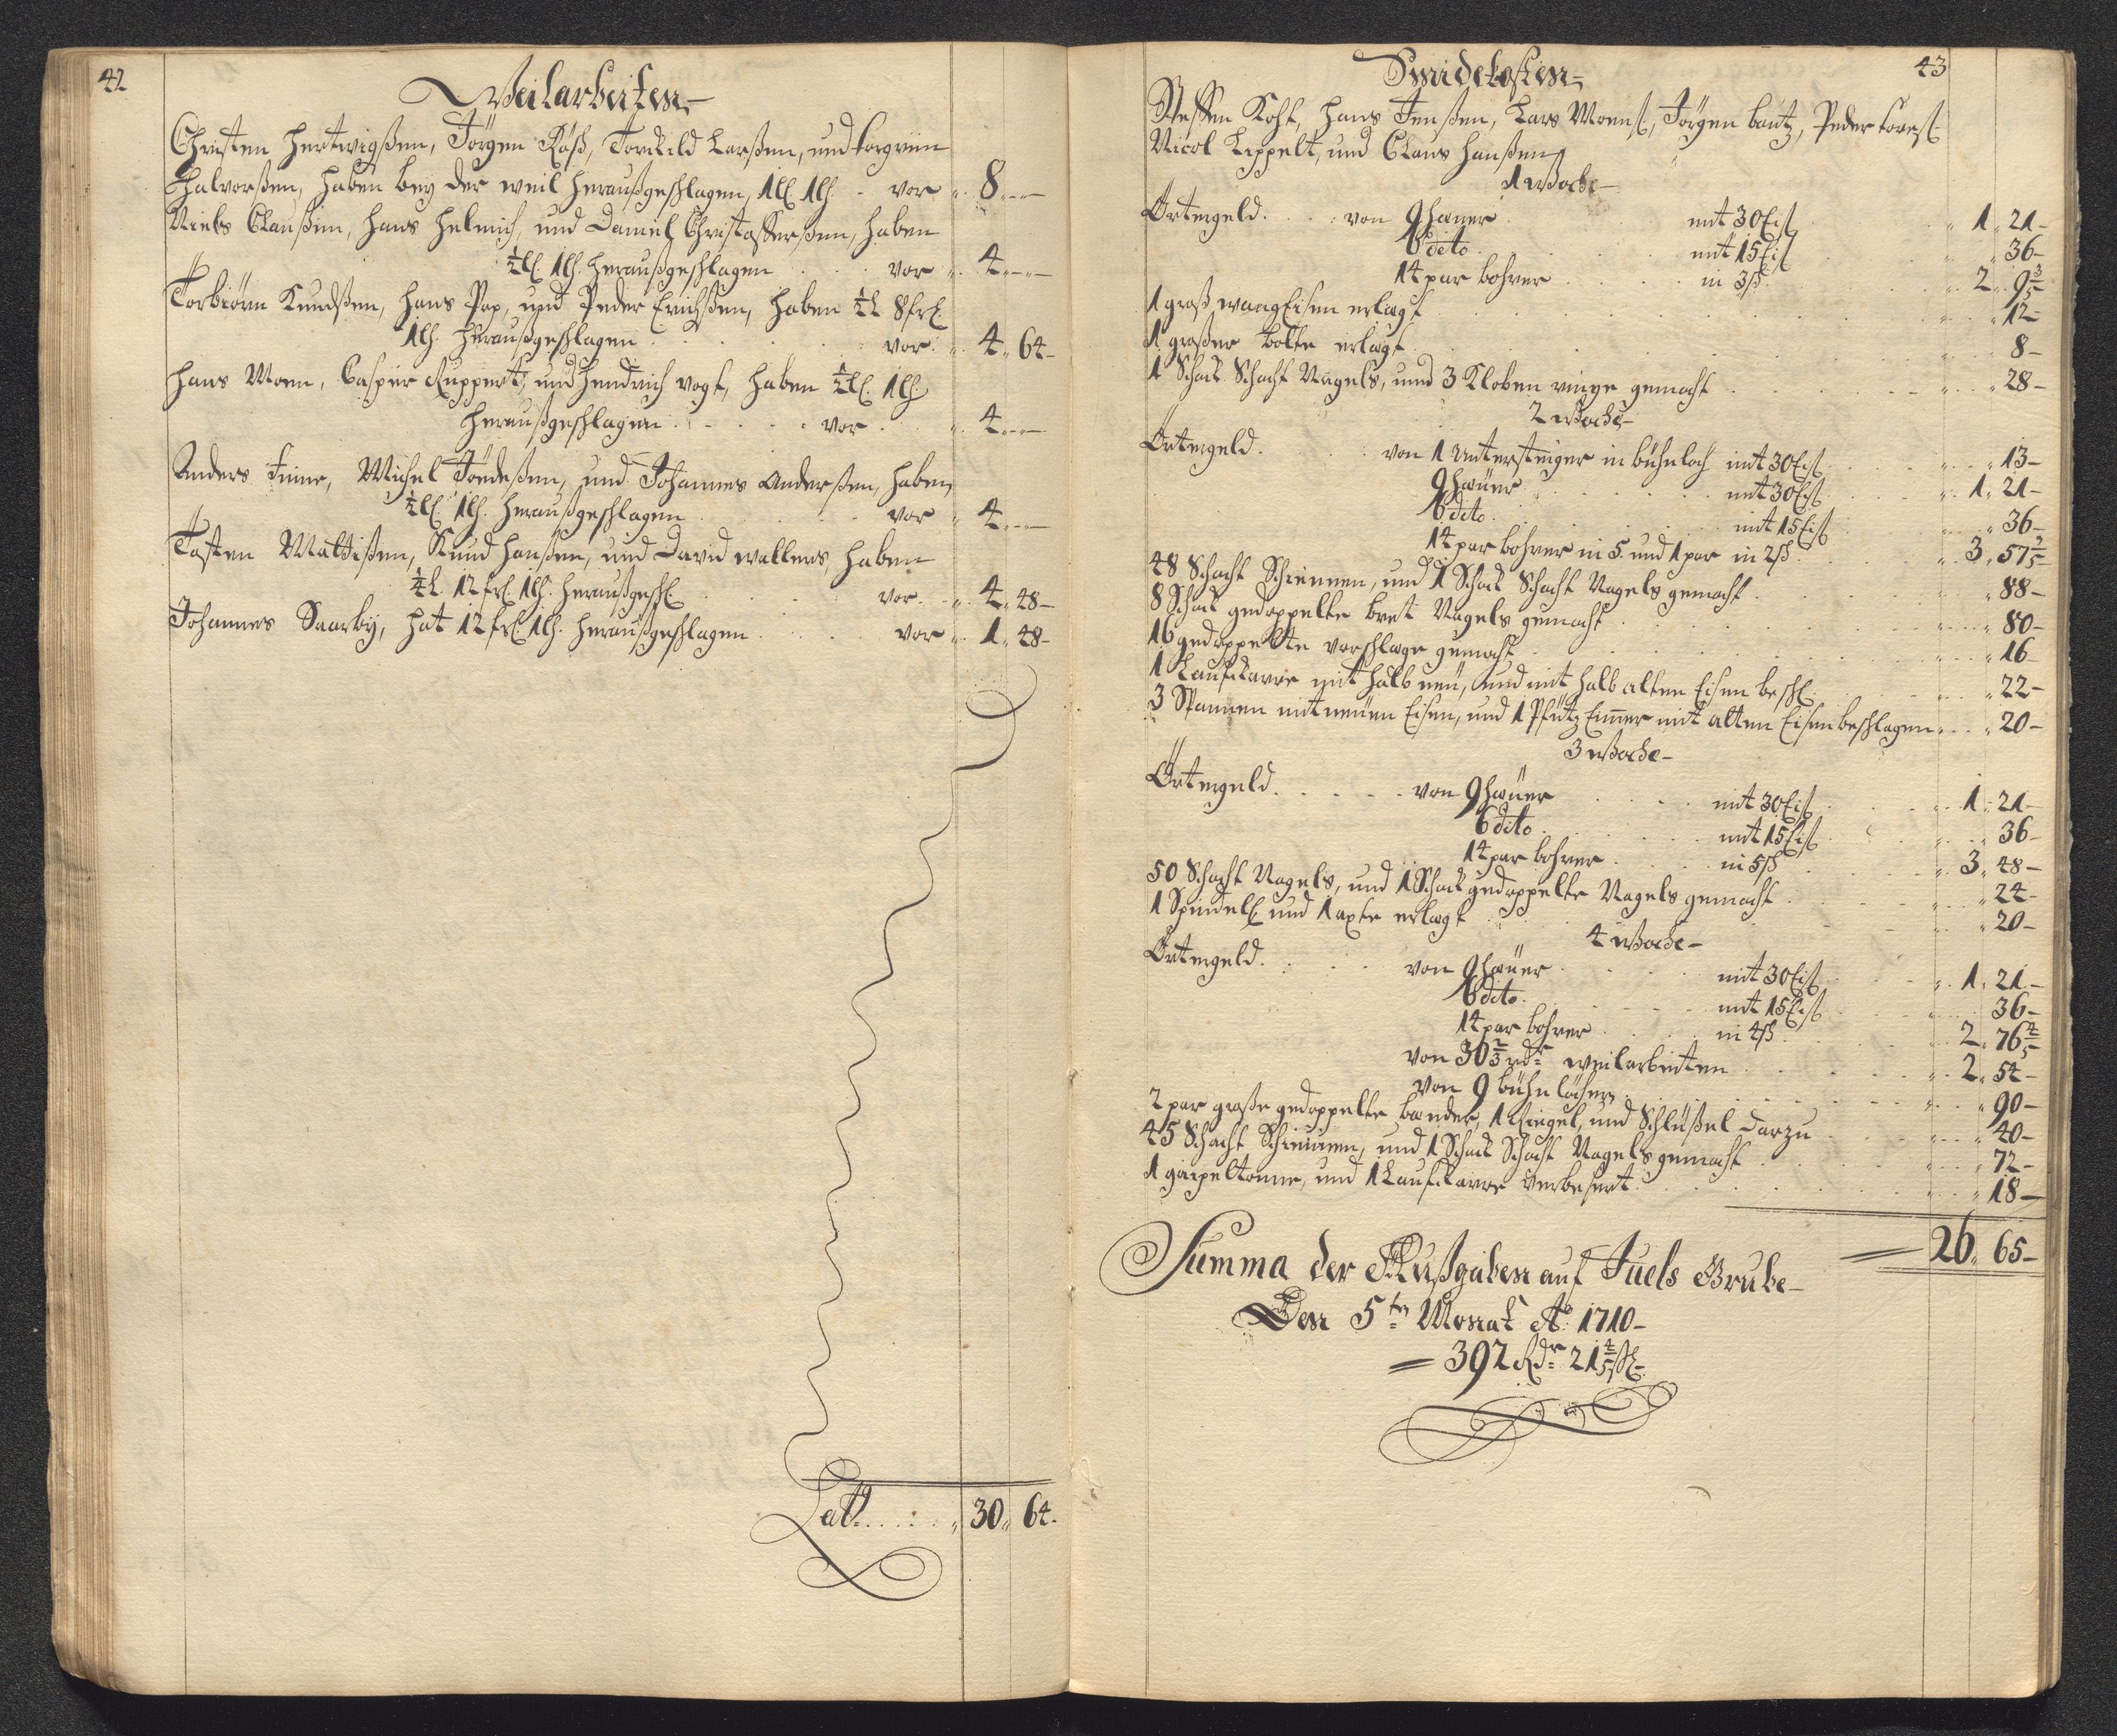 42
Weilarbeiten
Christen Hertwigßen, Jörgen Röß, Torkild Larßen, und Torgrim
Halvorßen, haben bey der weil heraußgeschlagen, 1 L. 1 lh. vor 8 „ —
Niels Claußen, Hans Helmich, und Daniel Christofferßen, haben
½ L. 1 lh. heraußgeschlagen vor 4 „ —
Torbiörn Knudßen, Hans Pop, und Peder Erichßen, haben ½ L 8 frl.
1 lh. heraußgeschlagen vor 4 „ 64 –
Hans Moen, Casper Ruppert, und Hendrich Vogt, haben ½ L. 1 lh
heraußgeschlagen vor 4 „ —
Anders, Michel Tördeßen, und Johannes Anderßen, haben
½ L. 1 lh. heraußgeschlagen vor 4 „ —
Tosten Mattißen, Knud Hanßen, und David Wallers, haben
½ L. 12 frl. 1 lh. heraußgeschl. vor 4 „ 48 –
Johannes Saarby, hat 12 frl. 1 lh. heraußgeschlagen vor 1 „ 48 –
Lat. 30 „ 64.
43
Smidekosten
Steffen Kohl, Hans Jenßen, Lars Moenß, Jörgen Bautz, Peder
Nicol Lippelt, und Claus Hanßen
1 Woche –
Örtergeld. von 9 Hæuer mit 30 Eiß 1 „ 21 –
6 dito mit 15 Eiß „ 36 –
14 par bohrer in 3 ß. 2 „ 9 3/5
1 groß wang Eisen erlægt 12 –
1 großer bolte erlægt 8 –
1 Schock Schacht Nagels, und 3 Kloben ringe gemacht 28 –
2 Woche –
Örtergeld. von 1 Untersteiger in bühnloch mit 30 Eiß 13 –
9 Hæüer mit 30 Eiß 1 „ 21 –
6 dito mit 15 Eiß „ 36 –
14 par bohrer in 5. und 1 par in 2 ß. 3 „ 57 3/5
48 Schacht Schiennen, und 1 Schock Schacht Nagels gemacht 88 –
8 Schock gedoppelte bret Nagels gemacht 80 –
16 gedoppelte vorschlæge gemacht 16
1 Laufkarre mit halb neü, und mit halb alten Eisen beschl. 22 –
3 Spannen mit neüen Eisen, und 1 Pfütz Eimer mit alten Eisen beschlagen 20 –
3 Woche –
Örtergeld. von 9 Hæüer mit 30 Eiß 1 „ 21 –
6 dito mit 15 Eiß „ 36 –
14 par bohrer in 5 ß 3 „ 48 –
50 Schacht Nagels, und 1 Schock gedoppelte Nagels gemacht 24 –
1 Spindel und 1 axte erlægt 20 –
4 Woche –
Örtergeld. von 9 Hæüer mit 30 Eiß 1 „ 21 –
6 dito. mit 15 Eiß 36 –
14 par bohrer in 4 ß 2 „ 76 4/5
von 30 2/3 rdr weilarbeiten 2 „ 54 –
von 9 bühnlöcher 90 –
2 par große gedoppelte bænder, 1 Riegel, und Schlüßel darzu 40 –
45 Schacht Schiennen, und 1 Schock Schacht Nagels gemacht 72 –
1 gæipeltonne, und 1 Laufkarre Verbeßert 18 –
26 „ 65 –
Summa der Außgaben auf Juels Grube –
Den 5ten Monat Ao 1710 –
= 392 Rdr 21 4/5 ßl.